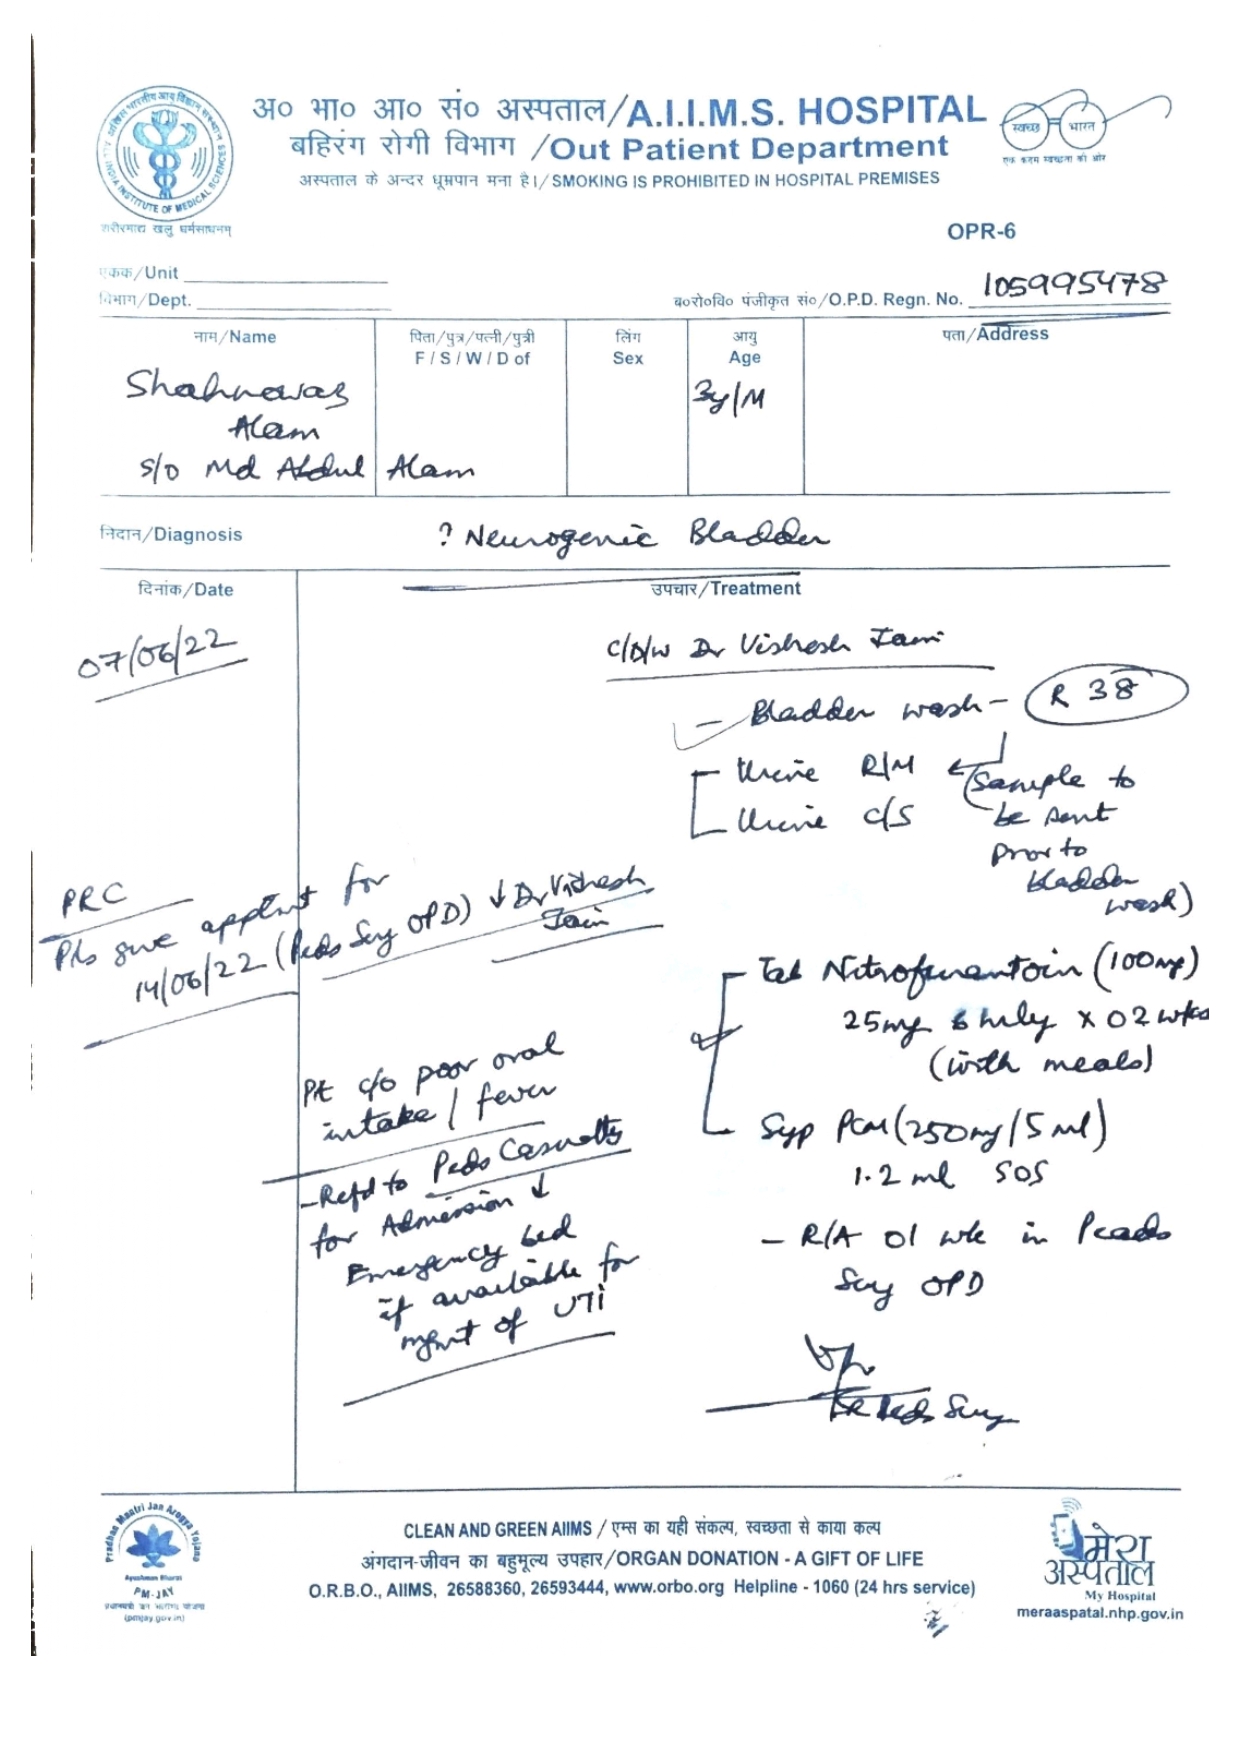 अ० भा० आ० सं० अस्पताल/A.I.I.M.S. HOSPITAL
बहिरंग रोगी विभाग /Out Patient Department
अस्पताल के अन्दर धूम्रपान मना है।/ SMOKING IS PROHIBITED IN HOSPITAL PREMISES
ALL INDIA INSTITUTE OF MEDICAL SCIENCES
शरीरमाद्यं खलु धर्मसाधनम्
स्वच्छ भारत
एक कदम स्वच्छता की ओर
OPR-6
एकक/Unit
विभाग/Dept.
ब०रो०वि० पंजीकृत सं०/O.P.D. Regn. No. 105995478
नाम/Name
पिता/पुत्र/पत्नी/पुत्री
F / S / W / D of
लिंग
Sex
आयु
Age
पता/Address
Shahnawaz
Alam
S/o Md Abdul Alam
3y/M
निदान/Diagnosis ? Neurogenic Bladder
दिनांक/Date
उपचार/Treatment
07/06/22
C/D/w Dr Vishesh Jain
- Bladder wash - R 38
Urine R/M (Sample to
Urine C/S be sent
prior to
bladder
wash)
PRC
Pls give apptmt for
14/06/22 (Peds Surg OPD) ↓ Dr Vishesh
Jain
Tab Nitrofurantoin (100mg)
25mg 6 hrly x 02 wks
(with meals)
Syp PCM (250mg/5ml)
1.2 ml SOS
- R/A 01 wk in Paeds
Surg OPD
Pt c/o poor oral
intake / fever
- Refd to Peds Casualty
for Admission ↓
Emergency bed
if available for
mgmt of UTI
Peds Surg
Pradhan Mantri Jan Arogya Yojana
Ayushman Bharat
PM-JAY
प्रधानमंत्री जन आरोग्य योजना
(pmjay.gov.in)
CLEAN AND GREEN AIIMS / एम्स का यही संकल्प, स्वच्छता से काया कल्प
अंगदान-जीवन का बहुमूल्य उपहार/ORGAN DONATION - A GIFT OF LIFE
O.R.B.O., AIIMS, 26588360, 26593444, www.orbo.org Helpline - 1060 (24 hrs service)
मेरा
अस्पताल
My Hospital
meraaspatal.nhp.gov.in